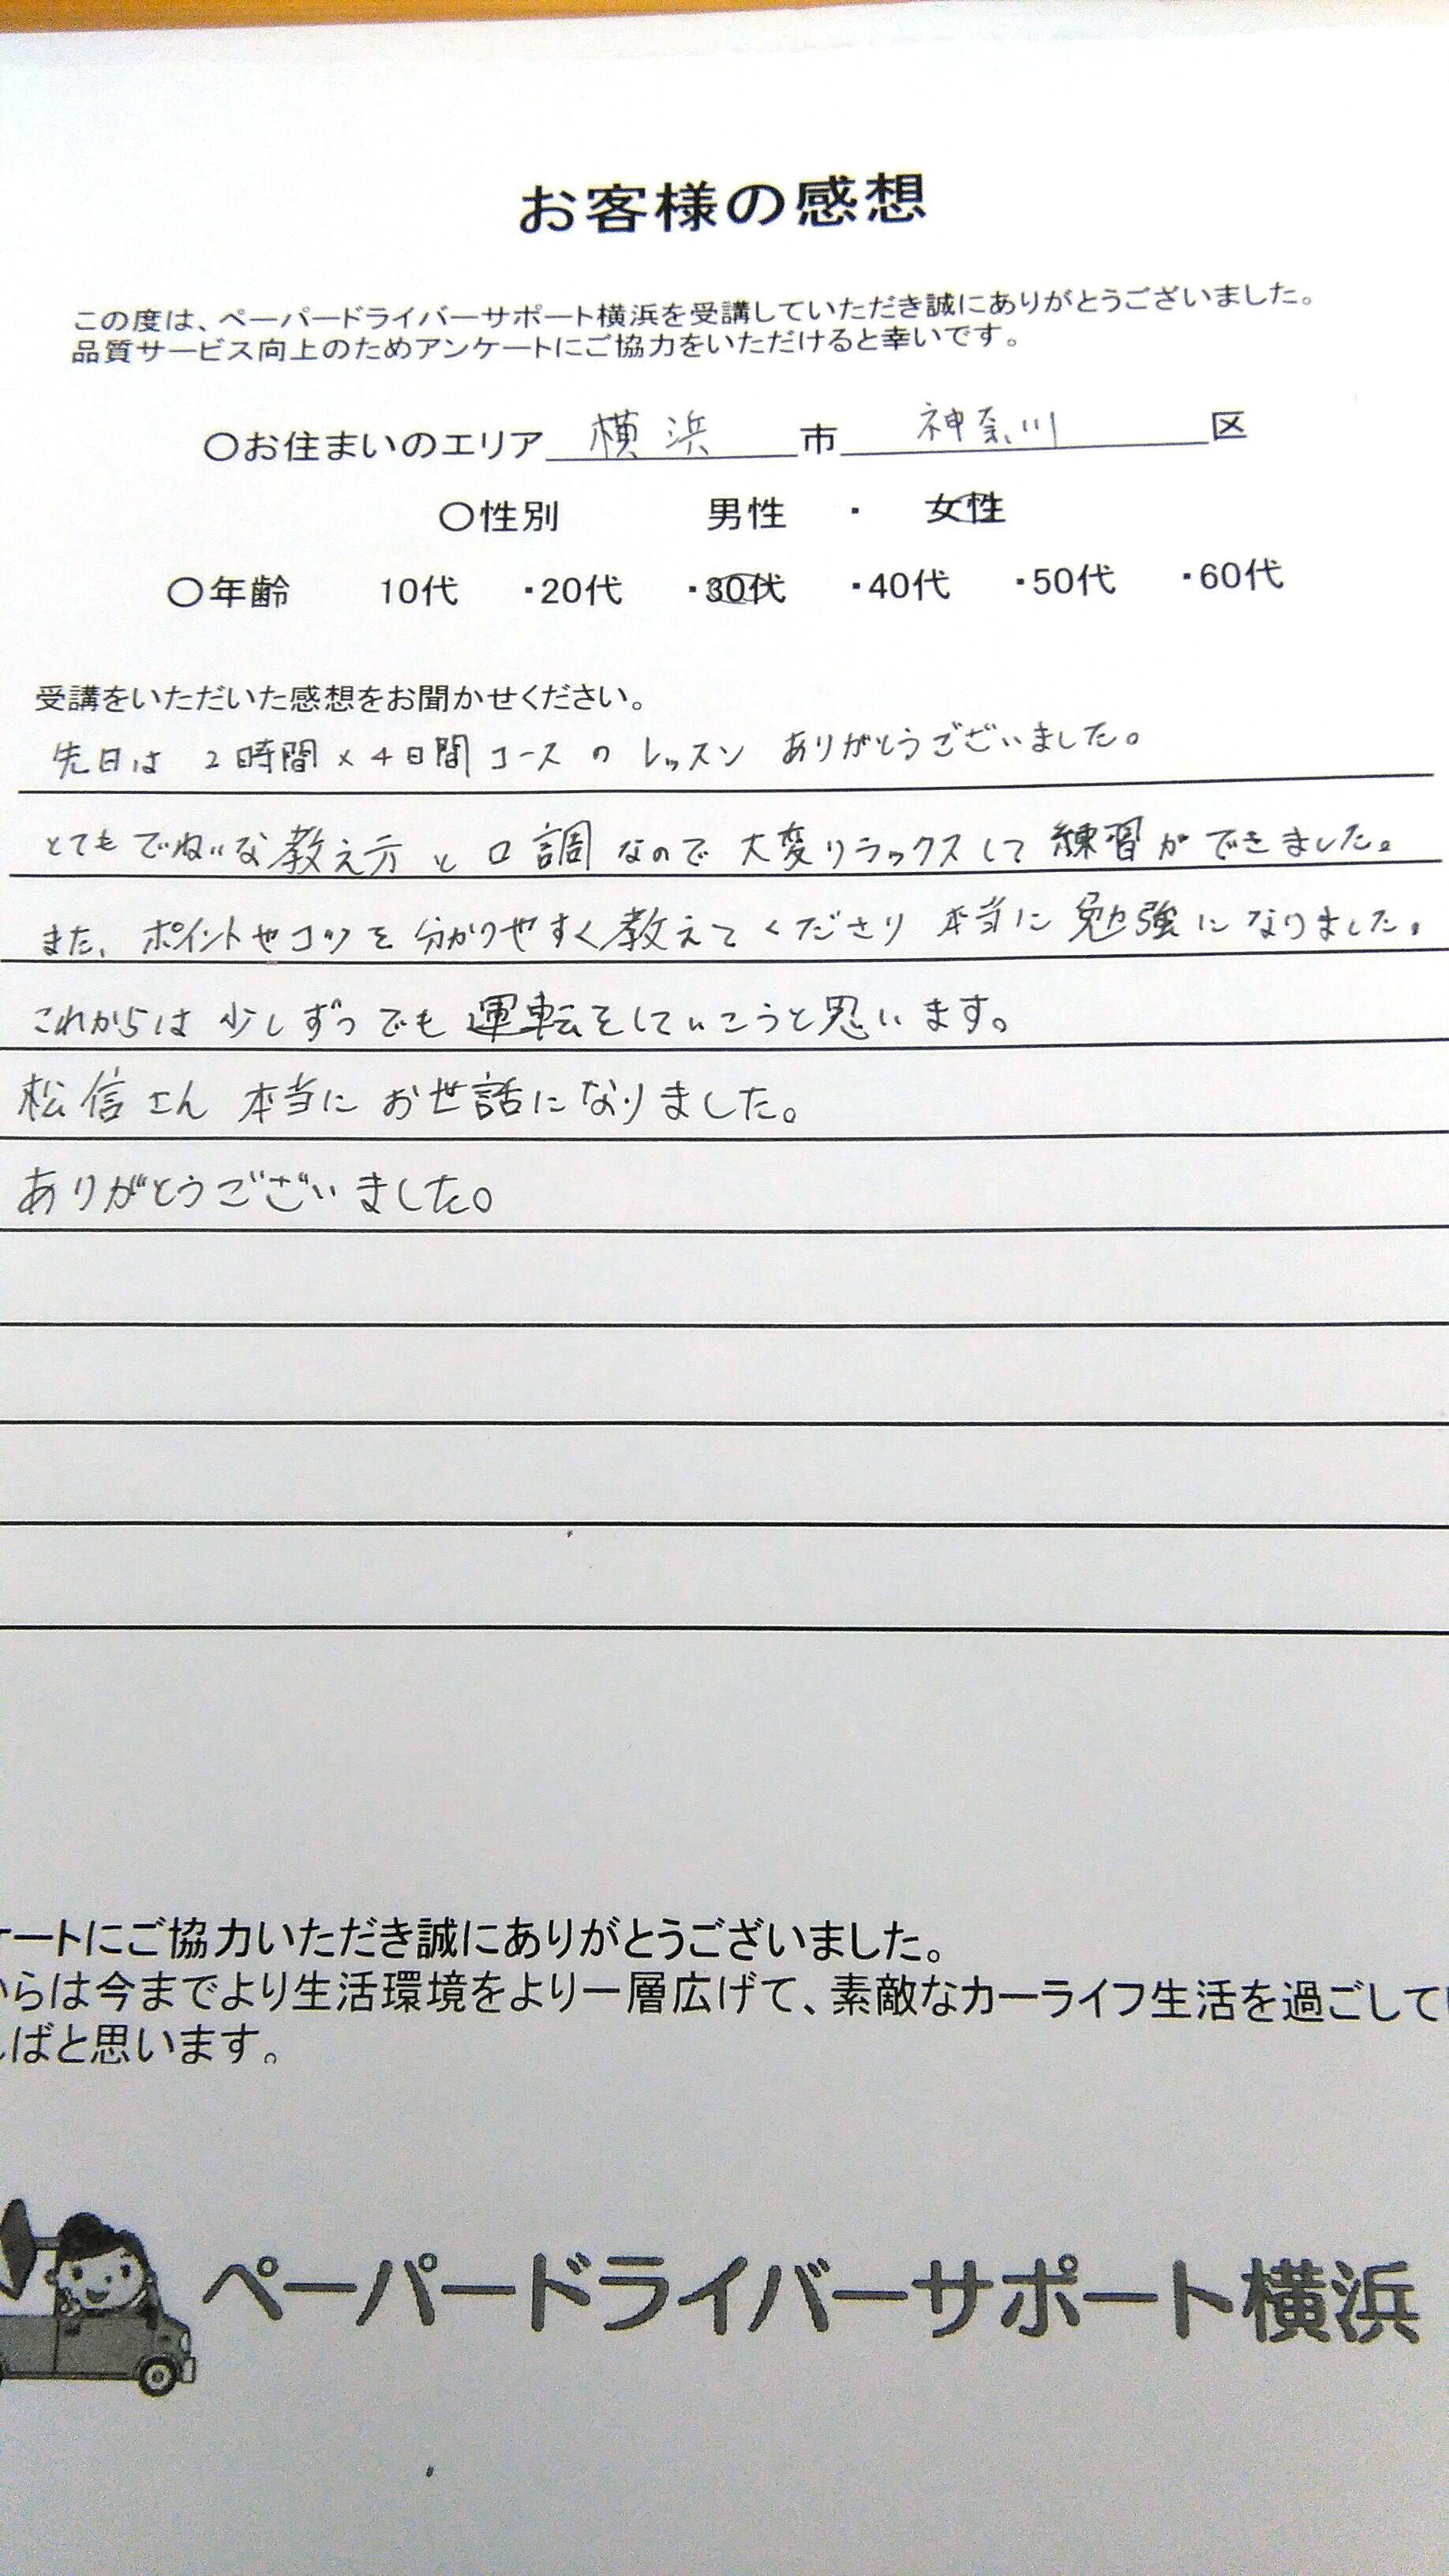 お客様の感想
この度は、ペーパードライバーサポート横浜を受講していただき誠にありがとうございました。
品質サービス向上のためアンケートにご協力をいただけると幸いです。
〇お住まいのエリア 横浜 市 神奈川 区
〇性別 男性 ・ 女性
〇年齢 10代 ・20代 ・30代 ・40代 ・50代 ・60代
受講をいただいた感想をお聞かせください。
先日は 2時間×4日間コースの レッスン ありがとうございました。
とてもでねいな教え方と口調なので大変リラックスして練習ができました。
また、ポイントやコツを分かりやすく教えてくださり本当に勉強になりました。
これからは少しずつでも運転をしていこうと思います。
松信さん 本当に お世話になりました。
ありがとうございました。
ケートにご協力いただき誠にありがとうございました。
からは今までより生活環境をより一層広げて、素敵なカーライフ生活を過ごしてい
ればと思います。
ペーパードライバーサポート横浜